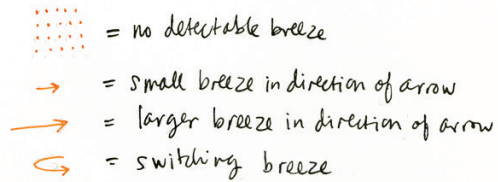 = no detectable breeze
= small breeze in direction of arrow
= larger breeze in direction of arrow
= switching breeze